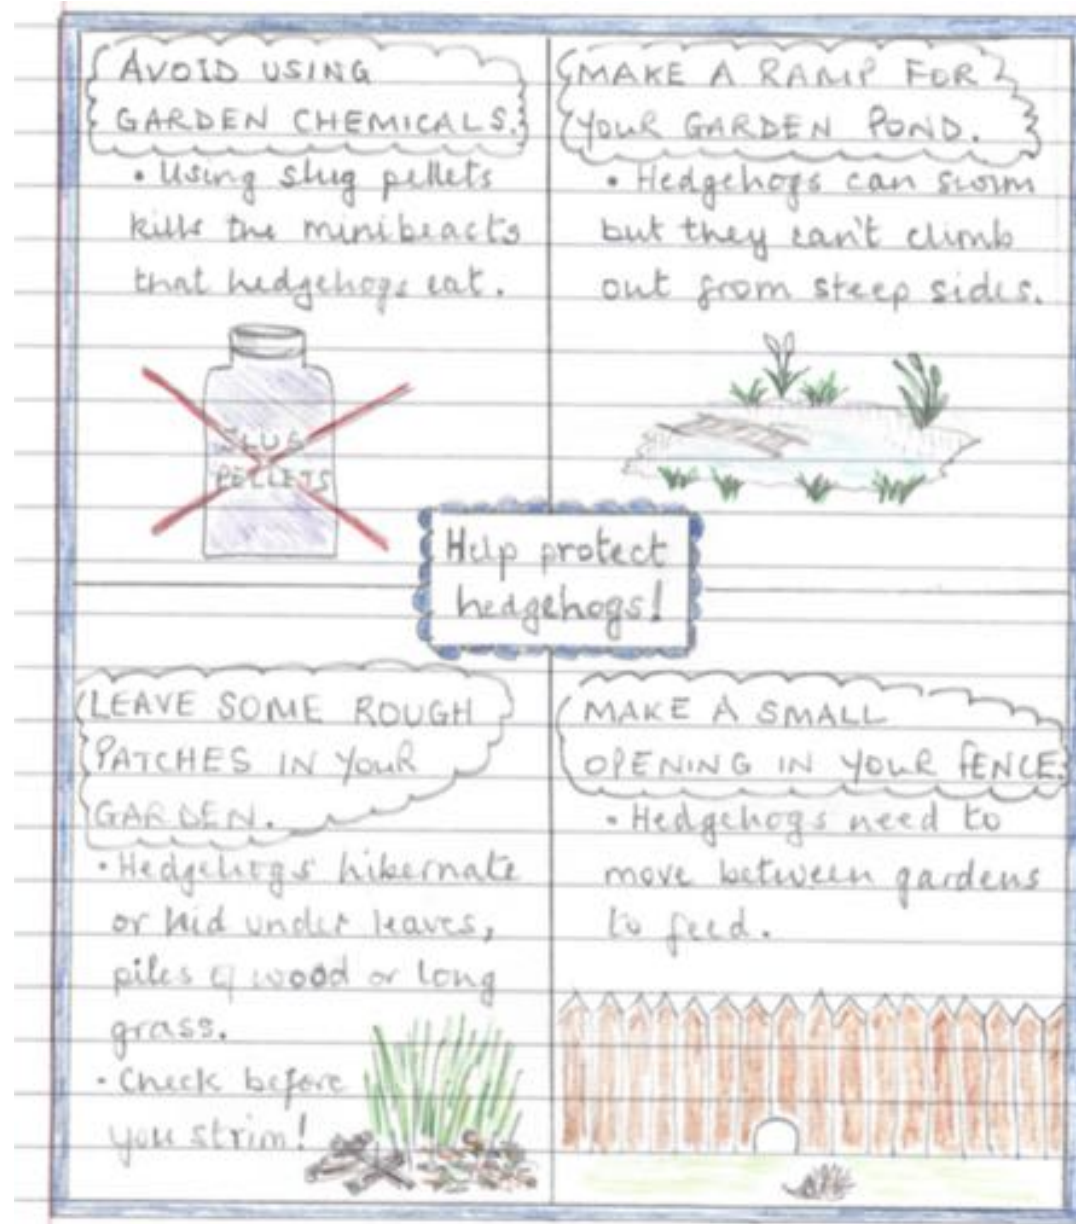 AVOID USING
GARDEN CHEMICALS.
• Using slug pellets
kills the minibeacts
that hedgehogs eat.
SLUG
PELLETS
MAKE A RAMP FOR
YOUR GARDEN POND.
• Hedgehogs can swim
but they can't climb
out from steep sides.
Help protect
hedgehogs!
LEAVE SOME ROUGH
PATCHES IN YOUR
GARDEN.
• Hedgehogs hibernate
or hid under leaves,
piles of wood or long
grass.
• Check before
you strim!
MAKE A SMALL
OPENING IN YOUR FENCE.
• Hedgehogs need to
move between gardens
to feed.